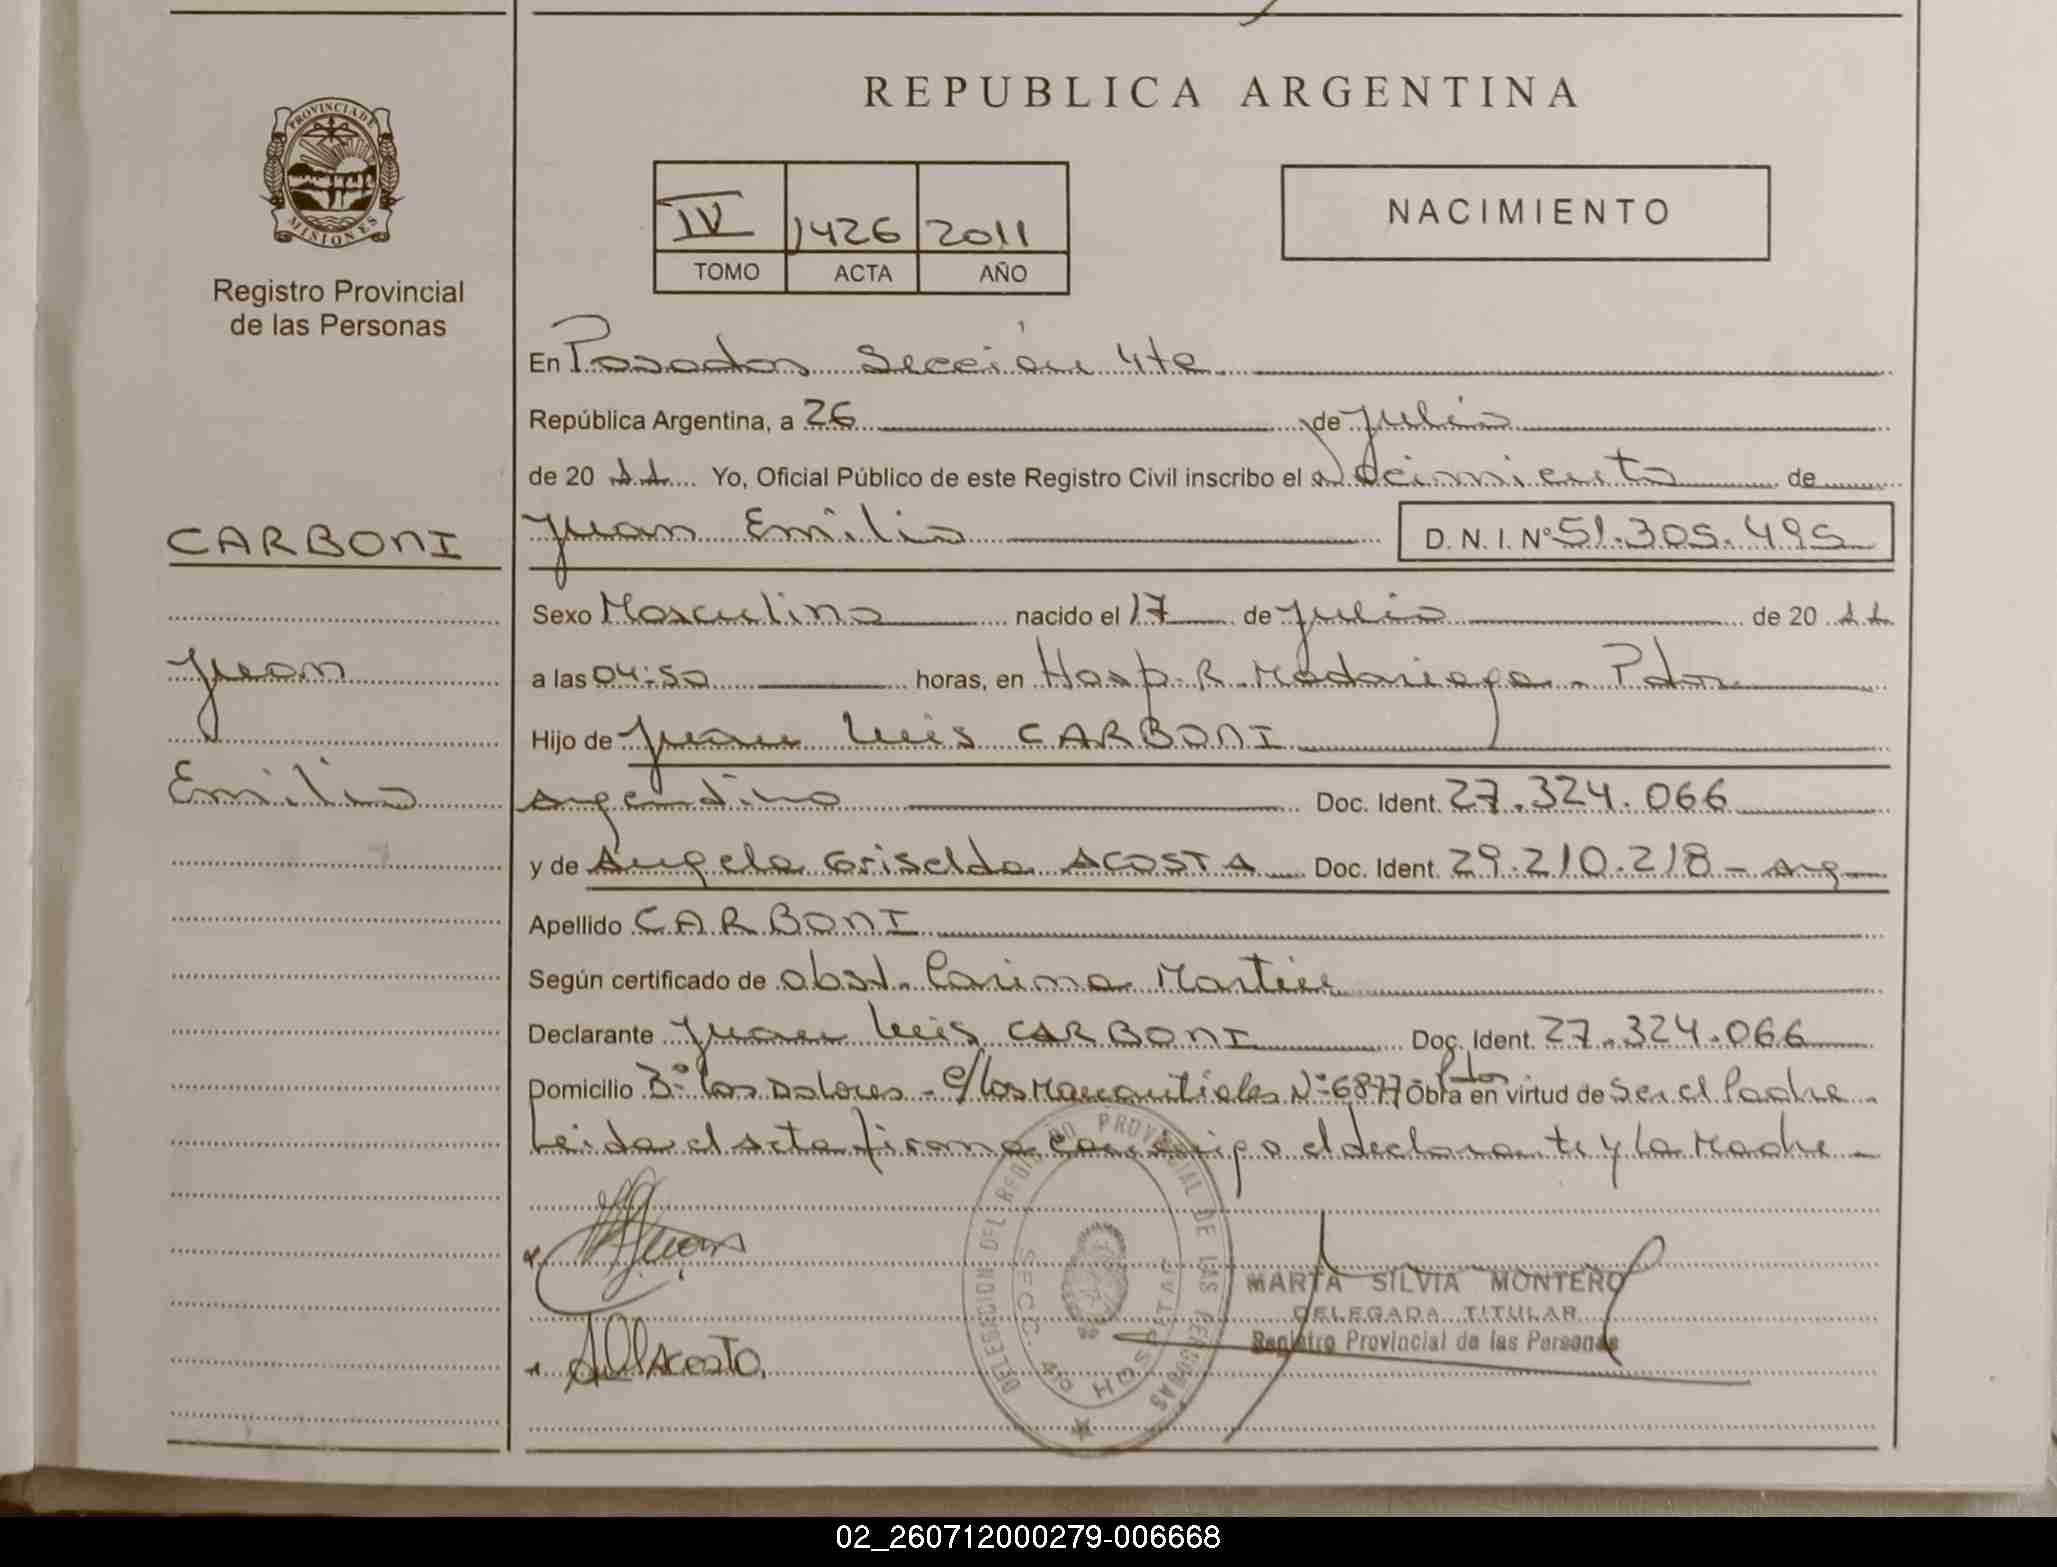 REPUBLICA ARGENTINA
PROVINCIA DE MISIONES
Registro Provincial
de las Personas
IV 1426 2011
TOMO ACTA AÑO
NACIMIENTO
En Posadas Sección 4ta
República Argentina, a 26 de Julio
de 20 11 Yo, Oficial Público de este Registro Civil inscribo el Nacimiento de
CARBONI
Juan
Emilio
Juan Emilio D. N. I. Nº 51.305.495
Sexo Masculino nacido el 17 de Julio de 20 11
a las 04:50 horas, en Hosp. R. Madariaga - Pdas
Hijo de Juan Luis CARBONI
Argentino Doc. Ident. 27.324.066
y de Angela Griselda ACOSTA Doc. Ident. 29.210.218 - Arg
Apellido CARBONI
Según certificado de obst. Carina
Declarante Juan Luis CARBONI Doc. Ident. 27.324.066
Domicilio Bº Los Dolores - C/ Los Manantiales Nº 6877 Pdas Obra en virtud de Ser el Padre -
Leida el Acta firma conmigo el declarante y la Madre -
Juan
Acosta
DELEGACION DEL REGISTRO PROVINCIAL DE LAS PERSONAS
SECC. 4ta
MARTA SILVIA MONTERO
DELEGADA TITULAR
Registro Provincial de las Personas
02_260712000279-006668